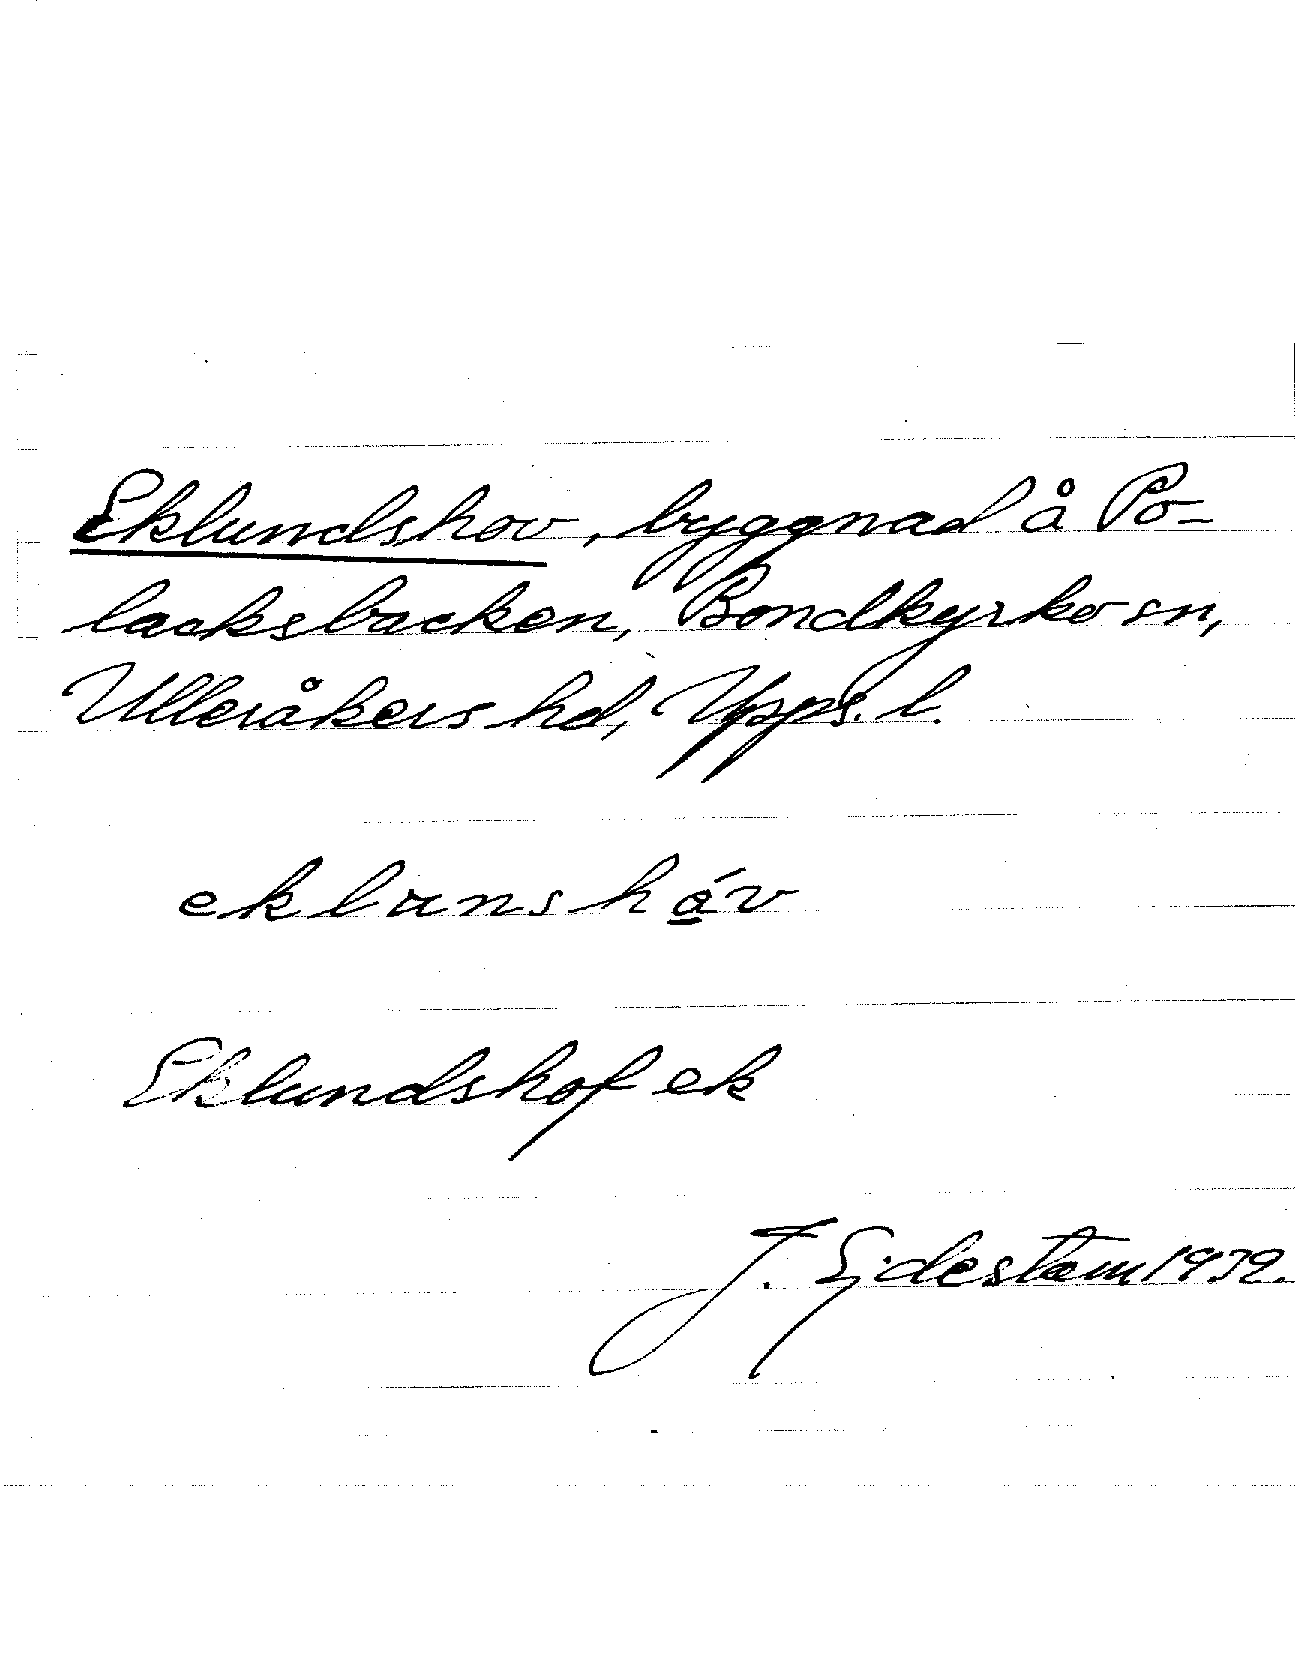 Eklundshov, byggnad å Po-
lacksbacken, Bondkyrko sn,
Ulleråkers hd, Upps. l.
eklunshǻv
Eklundshof ek
J. Ejdestam 1939.